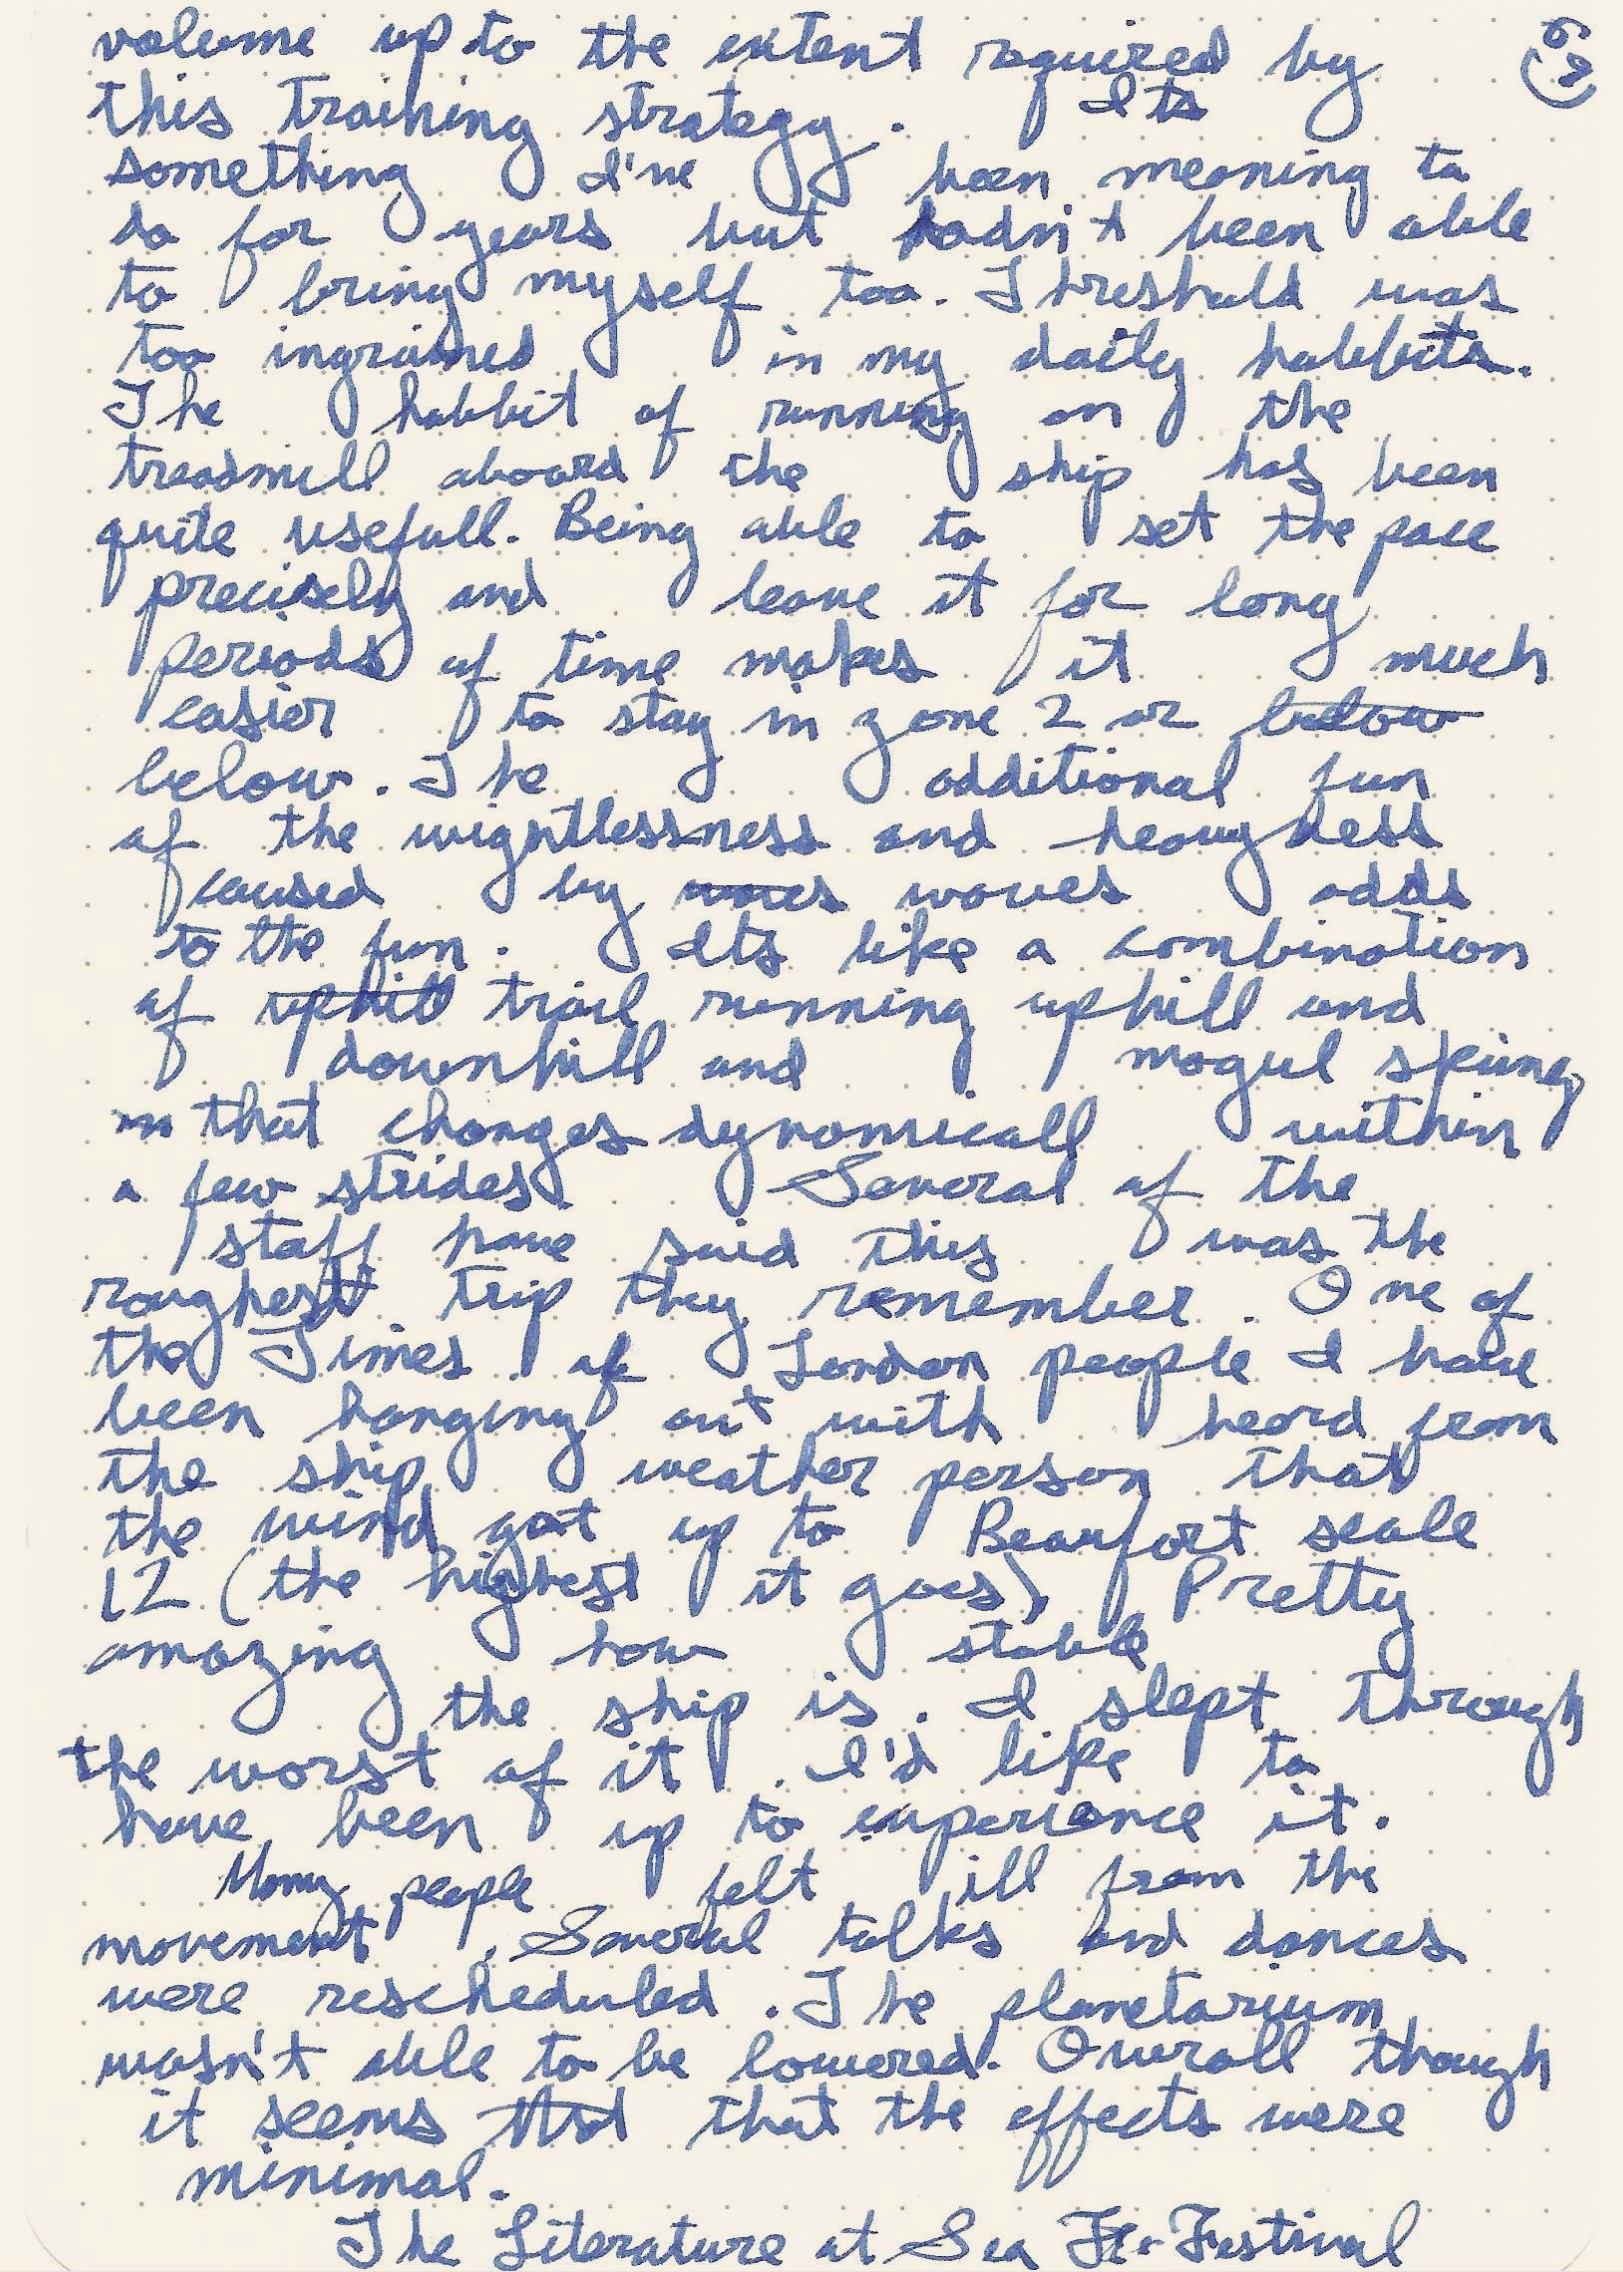 volume up to the extent required by
this training strategy. Its
something I've been meaning to
do for years but hadn't been able
to bring myself too. Threshold was
too ingrained in my daily habbits.
The habbit of running on the
treadmill aboard the ship has been
quite usefull. Being able to set the pace
precisely and leave it for long
periods of time makes it much
easier to stay in zone 2 or below
below. The additional fun
of the wightlessness and heavyness
caused by waves adds
to the fun. Its like a combination
of uphill trail running uphill and
downhill and mogul skiing
in that changes dynamicall within
a few strides. Several of the
staff have said this was the
roughest trip they remember. One of
the Times of London people I have
been hanging out with heard from
the ship weather person that
the wind got up to Beaufort scale
12 (the highest it goes). Pretty
amazing how stable
the ship is. I slept through
the worst of it. I'd like to
have been up to experience it.
Many people felt ill from the
movement. Several talks and dances
were rescheduled. The planetarium
wasn't able to be lowered. Overall though
it seems that the effects were
minimal.
The Literature at Sea Festival